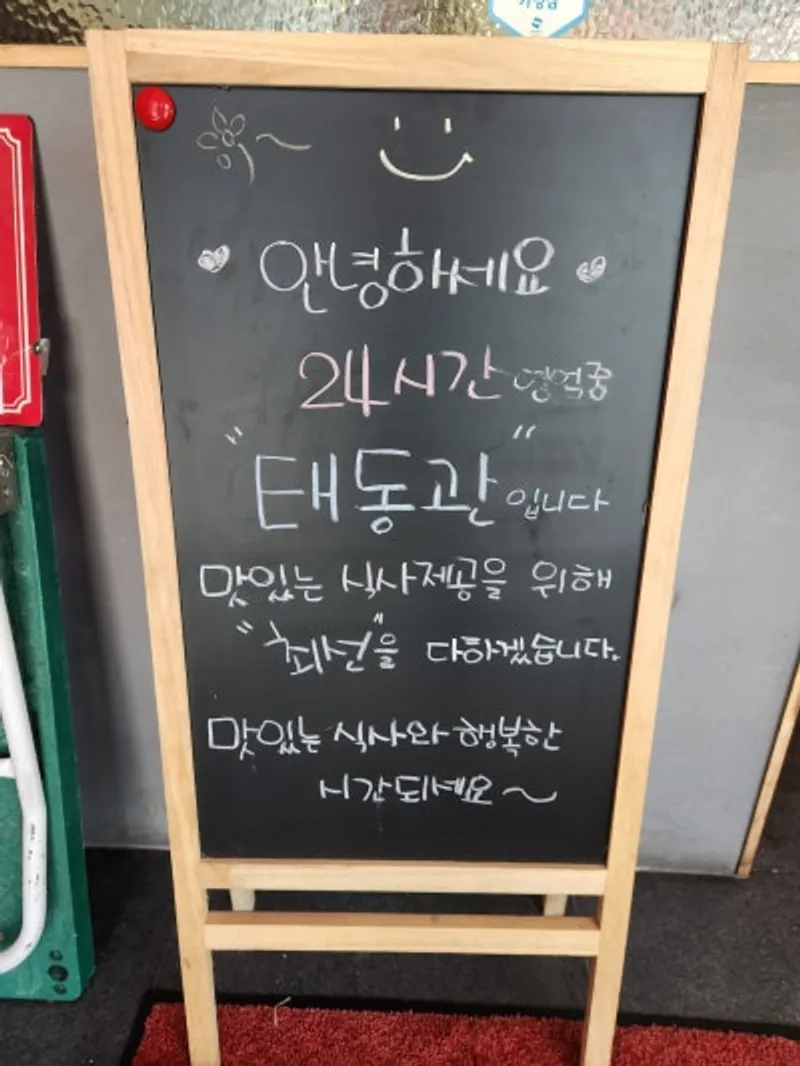 안녕하세요
24시간 영업중
"태동관"입니다
맛있는 식사제공을 위해
"최선"을 다하겠습니다.
맛있는 식사와 행복한
시간되세요~